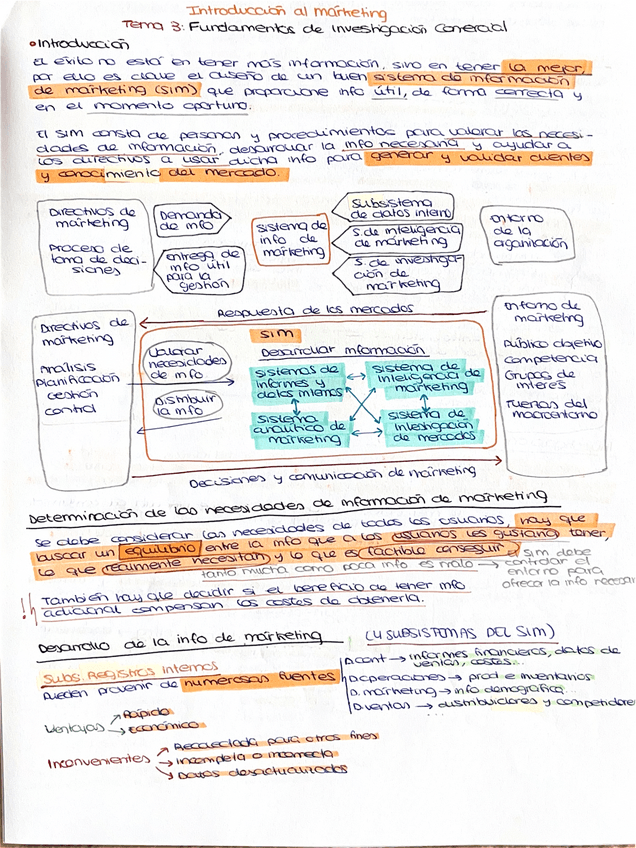 Introducción al marketing
Tema 3: Fundamentos de Investigación Comercial
•Introducción
El éxito no está en tener más información, sino en tener la mejor,
por ello es clave el diseño de un buen sistema de información
de marketing (SIM) que proporcione info útil, de forma correcta y
en el momento oportuno.
El SIM consta de personas y procedimientos para valorar las necesi-
dades de información, desarrollar la info necesaria y ayudar a
los directivos a usar dicha info para generar y validar clientes
y conocimiento del mercado.
Directivos de
marketing
Proceso de
toma de deci-
siones
Demanda
de info
entrega de
info útil
para la
gestión
Sistema de
info de
marketing
Subsistema
de datos interno
S. de inteligencia
de marketing
S. de investiga-
ción de
marketing
Entorno
de la
organización
Respuesta de los mercados
Directivos de
marketing
Análisis
Planificación
Gestión
Control
Valorar
necesidades
de info
Distribuir
la info
SIM
Desarrollar información
Sistemas de
informes y
datos internos
Sistema de
inteligencia de
marketing
Sistema
analítico de
marketing
Sistema de
investigación
de mercados
Entorno de
marketing
Público objetivo
Competencia
Grupos de
interés
Fuerzas del
macroentorno
Decisiones y comunicación de marketing
Determinación de las necesidades de información de marketing
Se debe considerar las necesidades de todos los usuarios, hay que
buscar un equilibrio entre la info que a los usuarios les gustaría tener,
lo que realmente necesitan y lo que es factible conseguir
tanto mucha como poca info es malo → El SIM debe
controlar el
entorno para
ofrecer la info necesar
!! También hay que decidir si el beneficio de tener info
adicional compensan los costes de obtenerla.
Desarrollo de la info de marketing (4 SUBSISTEMAS DEL SIM)
Subs. Registros Internos
Pueden provenir de numerosas fuentes
D.cont → informes financieros, datos de
ventas, costes...
D.operaciones → prod e inventarios
D. marketing → info demográfica...
D.ventas → distribuidores y competidores
...
Ventajas → Rápido
→ Económico
Inconvenientes → Recolectada para otros fines
→ incompleta o incorrecta
→ Datos desactualizados